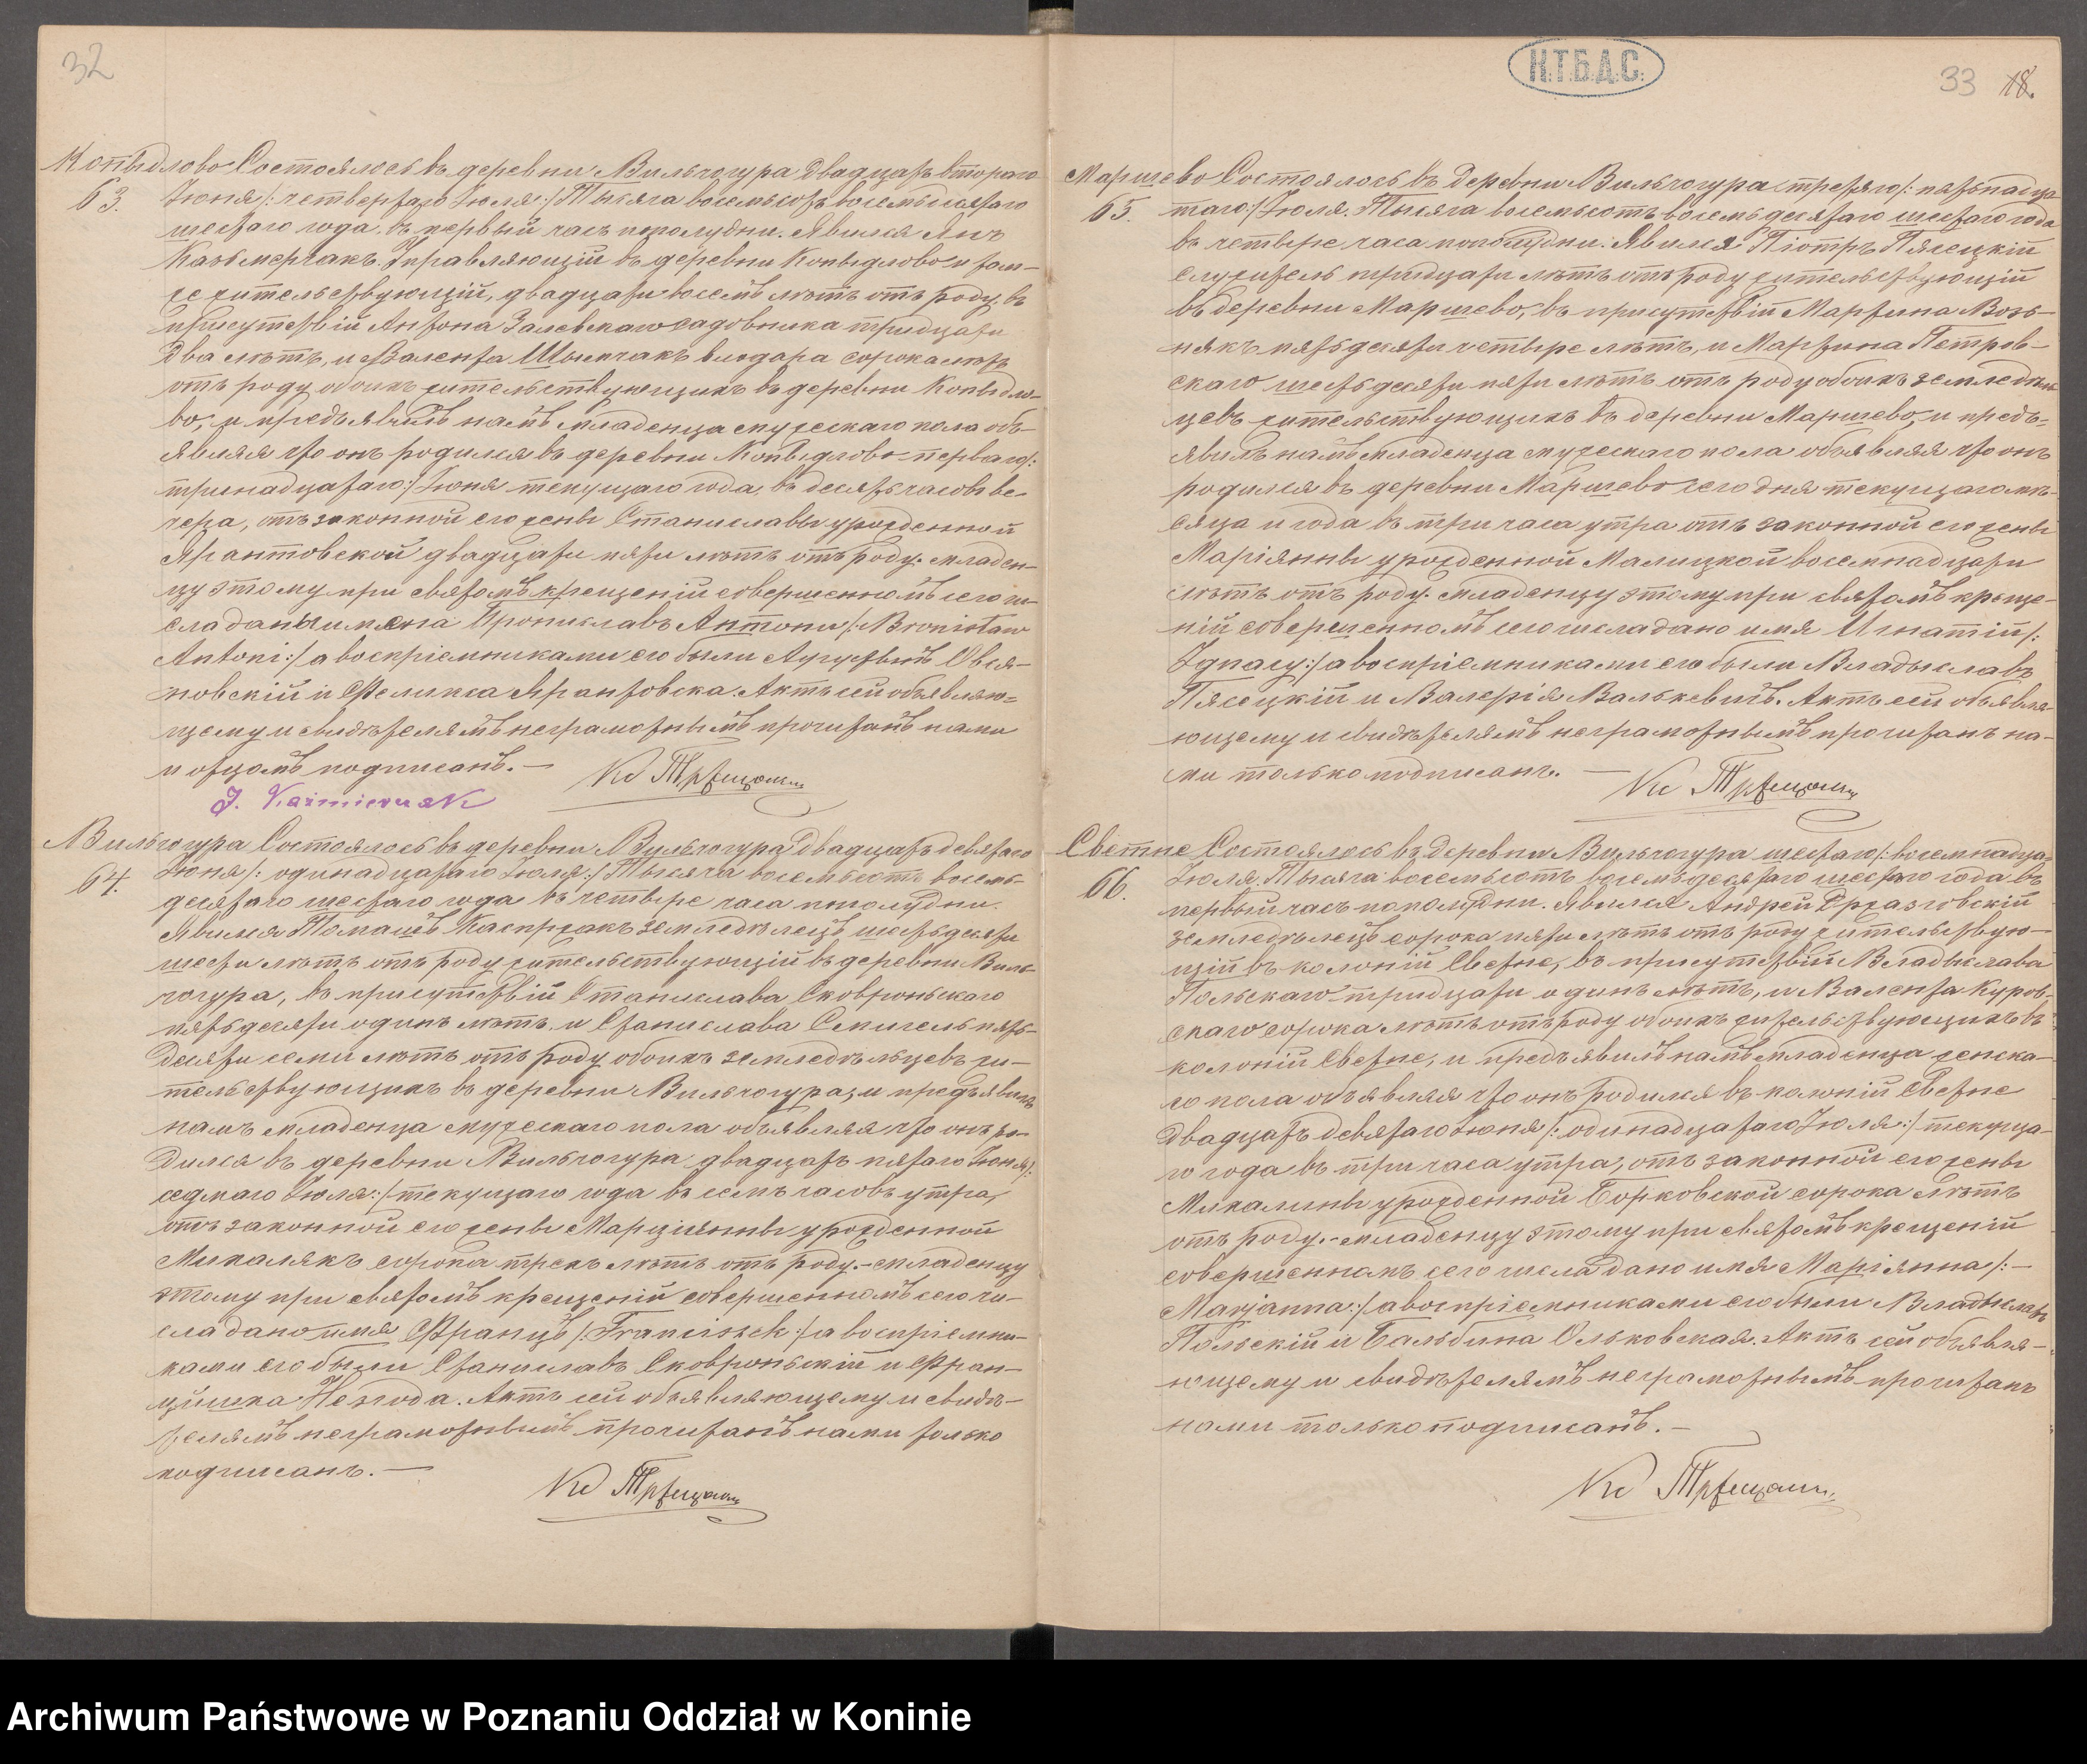 32
Копыдлово Состоялось въ деревни Вильчогура Двадцать втораго
63. Іюня /: четвертаго Іюля :/ Тысяча восемьсотъ восемьдесятаго
шестаго года, въ первый часъ пополудни. Явился Янъ
Казьмерчакъ. Управляющій въ деревни Копыдлово и там-
же жительствующій, двадцати восемь лѣтъ отъ роду, въ
присутствій Антона Залевскаго садовника тридцати
два лѣтъ, и Валента Шымчакъ влодара сорока лѣтъ
отъ роду обоихъ жительствующихъ въ деревни Копыдло-
во, и предъявилъ намъ младенца мужескаго пола объ-
являя что онъ родился въ деревни Копыдлово перваго /:
тринадцатаго :/ Іюня текущаго года, въ десять часовъ ве-
чера, отъ законной его жены Станиславы урожденной
Ярантовской двадцати пяти лѣтъ отъ роду. Младен-
цу этому при святомъ крещеній совершенномъ сего чи-
сла даны имена Брониславъ Антони /: Bronisław
Antoni :/ а воспріемниками его были Аугустынъ Овся-
новскій и Феликса Ярантовска. Актъ сей объявляю-
щему и свидѣтелямъ неграмотнымъ прочитанъ нами
и отцомъ подписанъ. —
J. Kaźmierczak
Вильчогура Состоялось въ деревни Вильчогура Двадцать девятаго
64. Іюня /: одинадцатаго Іюля :/ Тысяча восемьсотъ восемь-
десятаго шестаго года въ четыре часа пополудни.
Явился Томашъ Каспржакъ земледѣлецъ шестьдесяти
шести лѣтъ отъ роду жительствующій въ деревни Виль-
чогура, въ присутствій Станислава Сковроньскаго
пятьдесяти одинъ лѣтъ, и Станислава Смигель пять-
десяти семи лѣтъ отъ роду обоихъ земледѣльцевъ жи-
тельствующихъ въ деревни Вильчогура, и предъявилъ
намъ младенца мужескаго пола объявляя что онъ ро-
дился въ деревни Вильчогура двадцать пятаго Іюня /:
седмаго Іюля :/ текущаго года въ семь часовъ утра,
отъ законной его жены Марціянны урожденной
Михалякъ сорока трехъ лѣтъ отъ роду. - младенцу
этому при святомъ крещеній совершенномъ сего чи-
сла дано имя Францъ /: Franciszek :/ а воспріемни-
ками его были Станиславъ Сковроньскій и Фран-
цишка Незгода. Актъ сей объявляющему и свидѣ-
телямъ неграмотнымъ прочитанъ нами только
подписанъ. —
Н.Т.Б.Д.С.
33 18.
Маршево Состоялось въ деревни Вильчогура третяго /: пятьнадца-
65. таго :/ Іюля. Тысяча восемьсотъ восемьдесятаго шестаго года
въ четыре часа пополудни. Явился Піотръ Пясецкій
служитель тридцати лѣтъ отъ роду жительствующій
въ деревни Маршево, въ присутствій Мартина Возь-
някъ пятьдесяти четыре лѣтъ, и Мартина Петров-
скаго шестьдесяти пяти лѣтъ отъ роду обоихъ земледѣль-
цевъ жительствующихъ въ деревни Маршево, и предъ-
явилъ намъ младенца мужескаго пола объявляя что онъ
родился въ деревни Маршево сего дня текущаго мѣ-
сяца и года въ три часа утра отъ законной его жены
Маріянны урожденной Малицкой восемнадцати
лѣтъ отъ роду. Младенцу этому при святомъ креще-
ній совершенномъ сего числа дано имя Игнатій /:
Ignacy :/ а воспріемниками его были Владыславъ
Пясецкій и Валерія Валькевичъ. Актъ сей объявля-
ющему и свидѣтелямъ неграмотнымъ прочитанъ на-
ми только подписанъ. —
Светне Состоялось въ деревни Вильчогура шестаго /: восемнадца-
66. Іюля. Тысяча восемьсотъ восемьдесятаго шестаго года въ
первый часъ пополудни. Явился Андрей
земледѣлецъ сорока пяти лѣтъ отъ роду жительствую-
щій въ колоній Светне, въ присутствій Владыслава
Польскаго тридцати одинъ лѣтъ, и Валента Куров-
скаго сорока лѣтъ отъ роду обоихъ жительствующихъ въ
колоній Светне, и предъявилъ намъ младенца женска-
го пола объявляя что онъ родился въ колоній Светне
двадцать девятаго Іюня /: одинадцатаго Іюля :/ текуща-
го года въ три часа утра, отъ законной его жены
Михалины урожденной Борковской сорока лѣтъ
отъ роду. - младенцу этому при святомъ крещеній
совершенномъ сего числа дано имя Маріянна /: -
Marjanna :/ а воспріемниками его были Владыславъ
Польскій и Бальбина Ольковская. Актъ сей объявля-
ющему и свидѣтелямъ неграмотнымъ прочитанъ
нами только подписанъ. -
Archiwum Państwowe w Poznaniu Oddział w Koninie